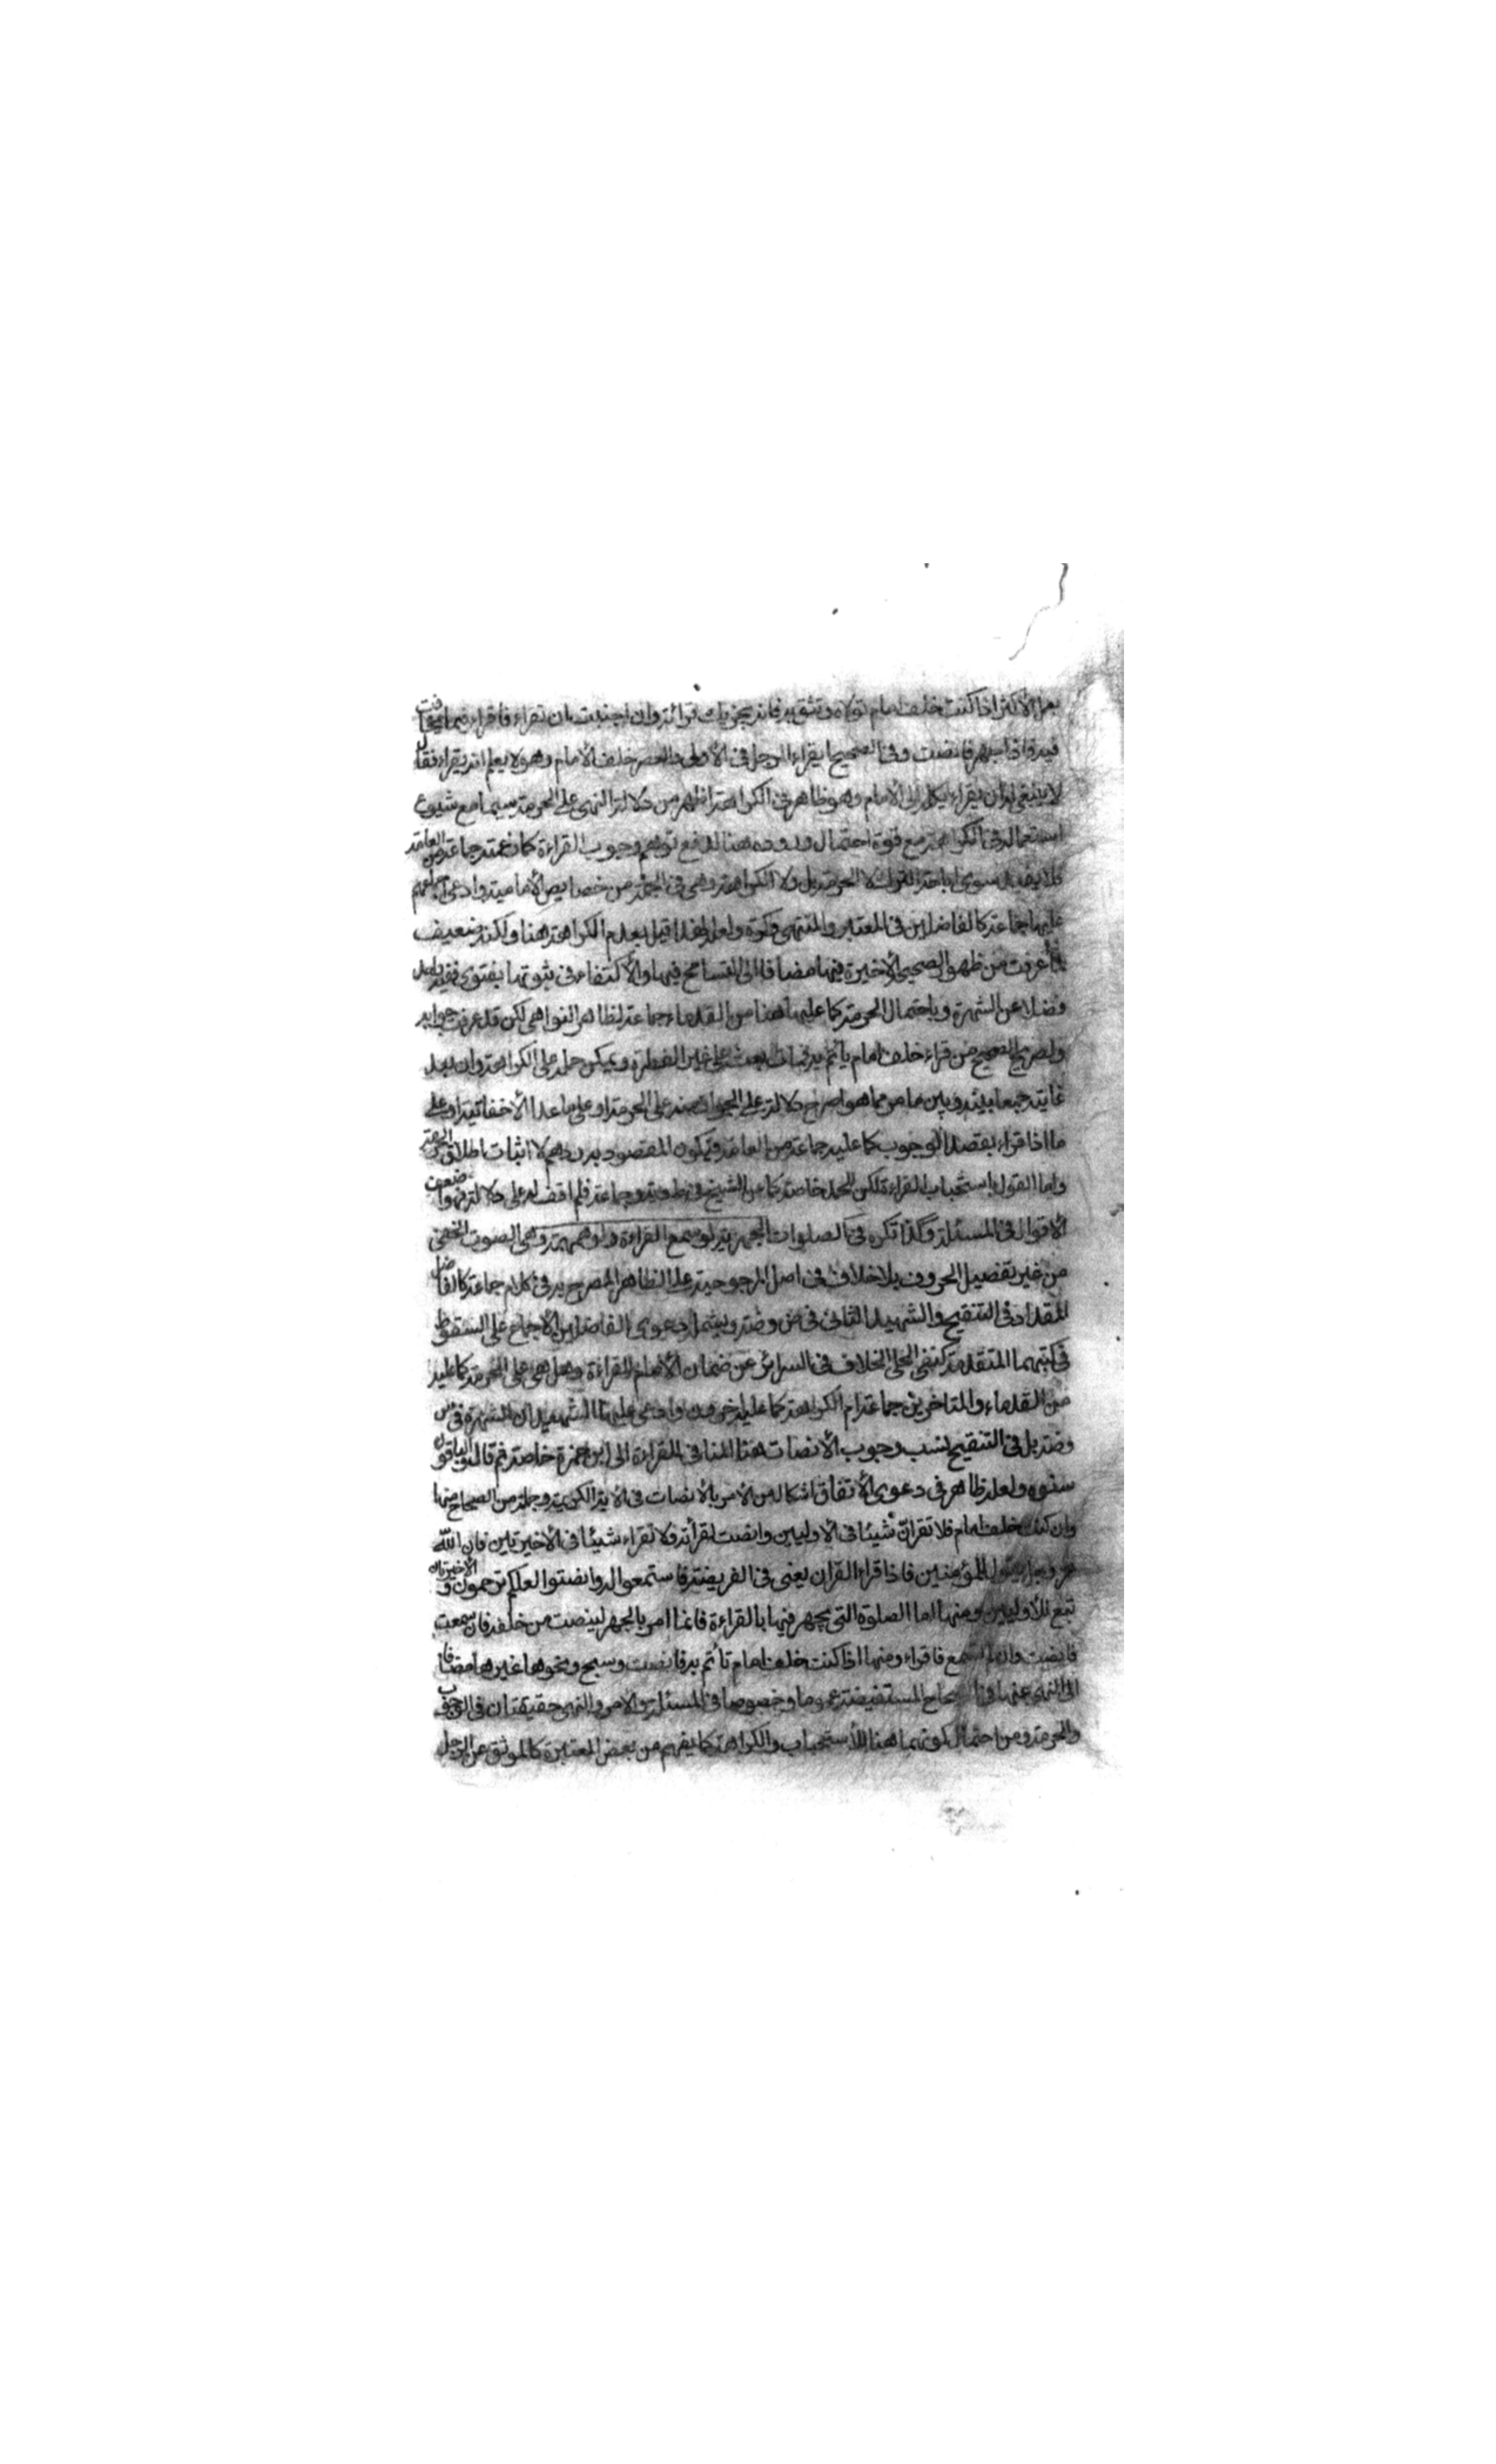 الأكثر اذا كنت خلف امام تولاه وتثق به فانه يجزيك قرائته وان احببت ان تقراء فاقراء فيما يخافت
فيه واذا جهر فانصت وفى الصحيح ايقراء الرجل فى الأولى والعصر خلف الأمام وهو لا يعلم انه يقراء فقال
لا ينبغى له ان يقراء يكله الى الأمام وهو ظاهر فى الكراهة اظهر من دلالة النهى على الحرمة سيما مع شيوع
استعماله فى الكراهة مع قوة احتمال وروده هنا لدفع توهم وجوب القراءة كما عن جماعة من العامة
فلا يفيد سوى اباحة الترك لا الحرمة بل ولا الكراهة وهى فى الجملة من خصايص الأمامية وادعى اجماعهم
عليها جماعة كالفاضلين فى المعتبر والمنتهى وكرة ولعله لهذا قيل بعدم الكراهة هنا ولكنه ضعيف
لما عرفت من ظهور الصحيح الأخيرة فيها مضافا الى التسامح فيها والأكتفاء فى ثبوتها بفتوى فقيه واحد
فضلا عن الشهرة وباحتمال الحرمة كما عليها هنا من القدماء جماعة لظاهر النواهى لكن قد عرفت جوابه
ولصريح الصحيح من قراء خلف امام يأتم به فمات بعث على غير الفطرة ويمكن حمله على الكراهة وان بعد
غايته جمعا بينه وبين ما مر مما هو اصرح دلالة على الجواز منه على الحرمة او على ما عدا الأخفاتية او على
ما اذا قراء بقصد الوجوب كما عليه جماعة من العامة فيكون المقصود به ردهم لا اثبات اطلاق الحرمة
واما القول باستحباب القراءة لكن الحمد خاصة كما عن الشيخ فى ط وية وجماعة فلم اقف له على دلالة فهو اضعف
الأقوال فى المسئلة وكذا تكره فى الصلوات الجهرية لو سمع القراءة ولو همهمة وهى الصوت الخفى
من غير تفصيل الحروف بلا خلاف فى اصل المرجوحية على الظاهر المصرح به فى كلام جماعة كالفاضل
المقداد فى التنقيح والشهيد الثانى فى ض وضة ويشمله دعوى الفاضلين الأجماع على السقوط
فى كتبهما المتقدمة كنفى الحلى الخلاف فى السرائر عن ضمان الأمام القراءة وهل هى على الحرمة كما عليه
من القدماء والمتاخرين جماعة ام الكراهة كما عليه اخرون وادعى عليها الشهيدان الشهرة فى س
وضة بل فى التنقيح نسب وجوب الأنصات هنا المنافى للقراءة الى ابن حمزة خاصة ثم قال والباقون
سنوه ولعله ظاهر فى دعوى الأتفاق اشكال من الأمر بالأنصات فى الاية الكريمة وجملة من الصحاح منها
وان كنت خلف امام فلا تقران شيئا فى الأوليين وانصت لقرأته فلا تقراء شيئا فى الأخيرتين فان الله
عز وجل يقول للمؤمنين فاذا قراء القران يعنى فى الفريضة فاستمعوا له وانصتوا لعلكم ترحمون والأخيرتان
تبع للأوليين ومنها اما الصلوة التى يجهر فيها بالقراءة فانما امر بالجهر لينصت من خلفه فان سمعت
فانصت وان لم تسمع فاقراء ومنها اذا كنت خلف امام تأتم به فانصت وسبح ونحوها غيرها مضافا
الى النهى عنها فى الصحاح المستفيضة عموما وخصوصا فى المسئلة والامر والنهى حقيقتان فى الوجوب
والحرمة ومن احتمال كونهما هنا للأستحباب والكراهة كما يفهم من بعض المعتبرة كالموثق عن الرجل